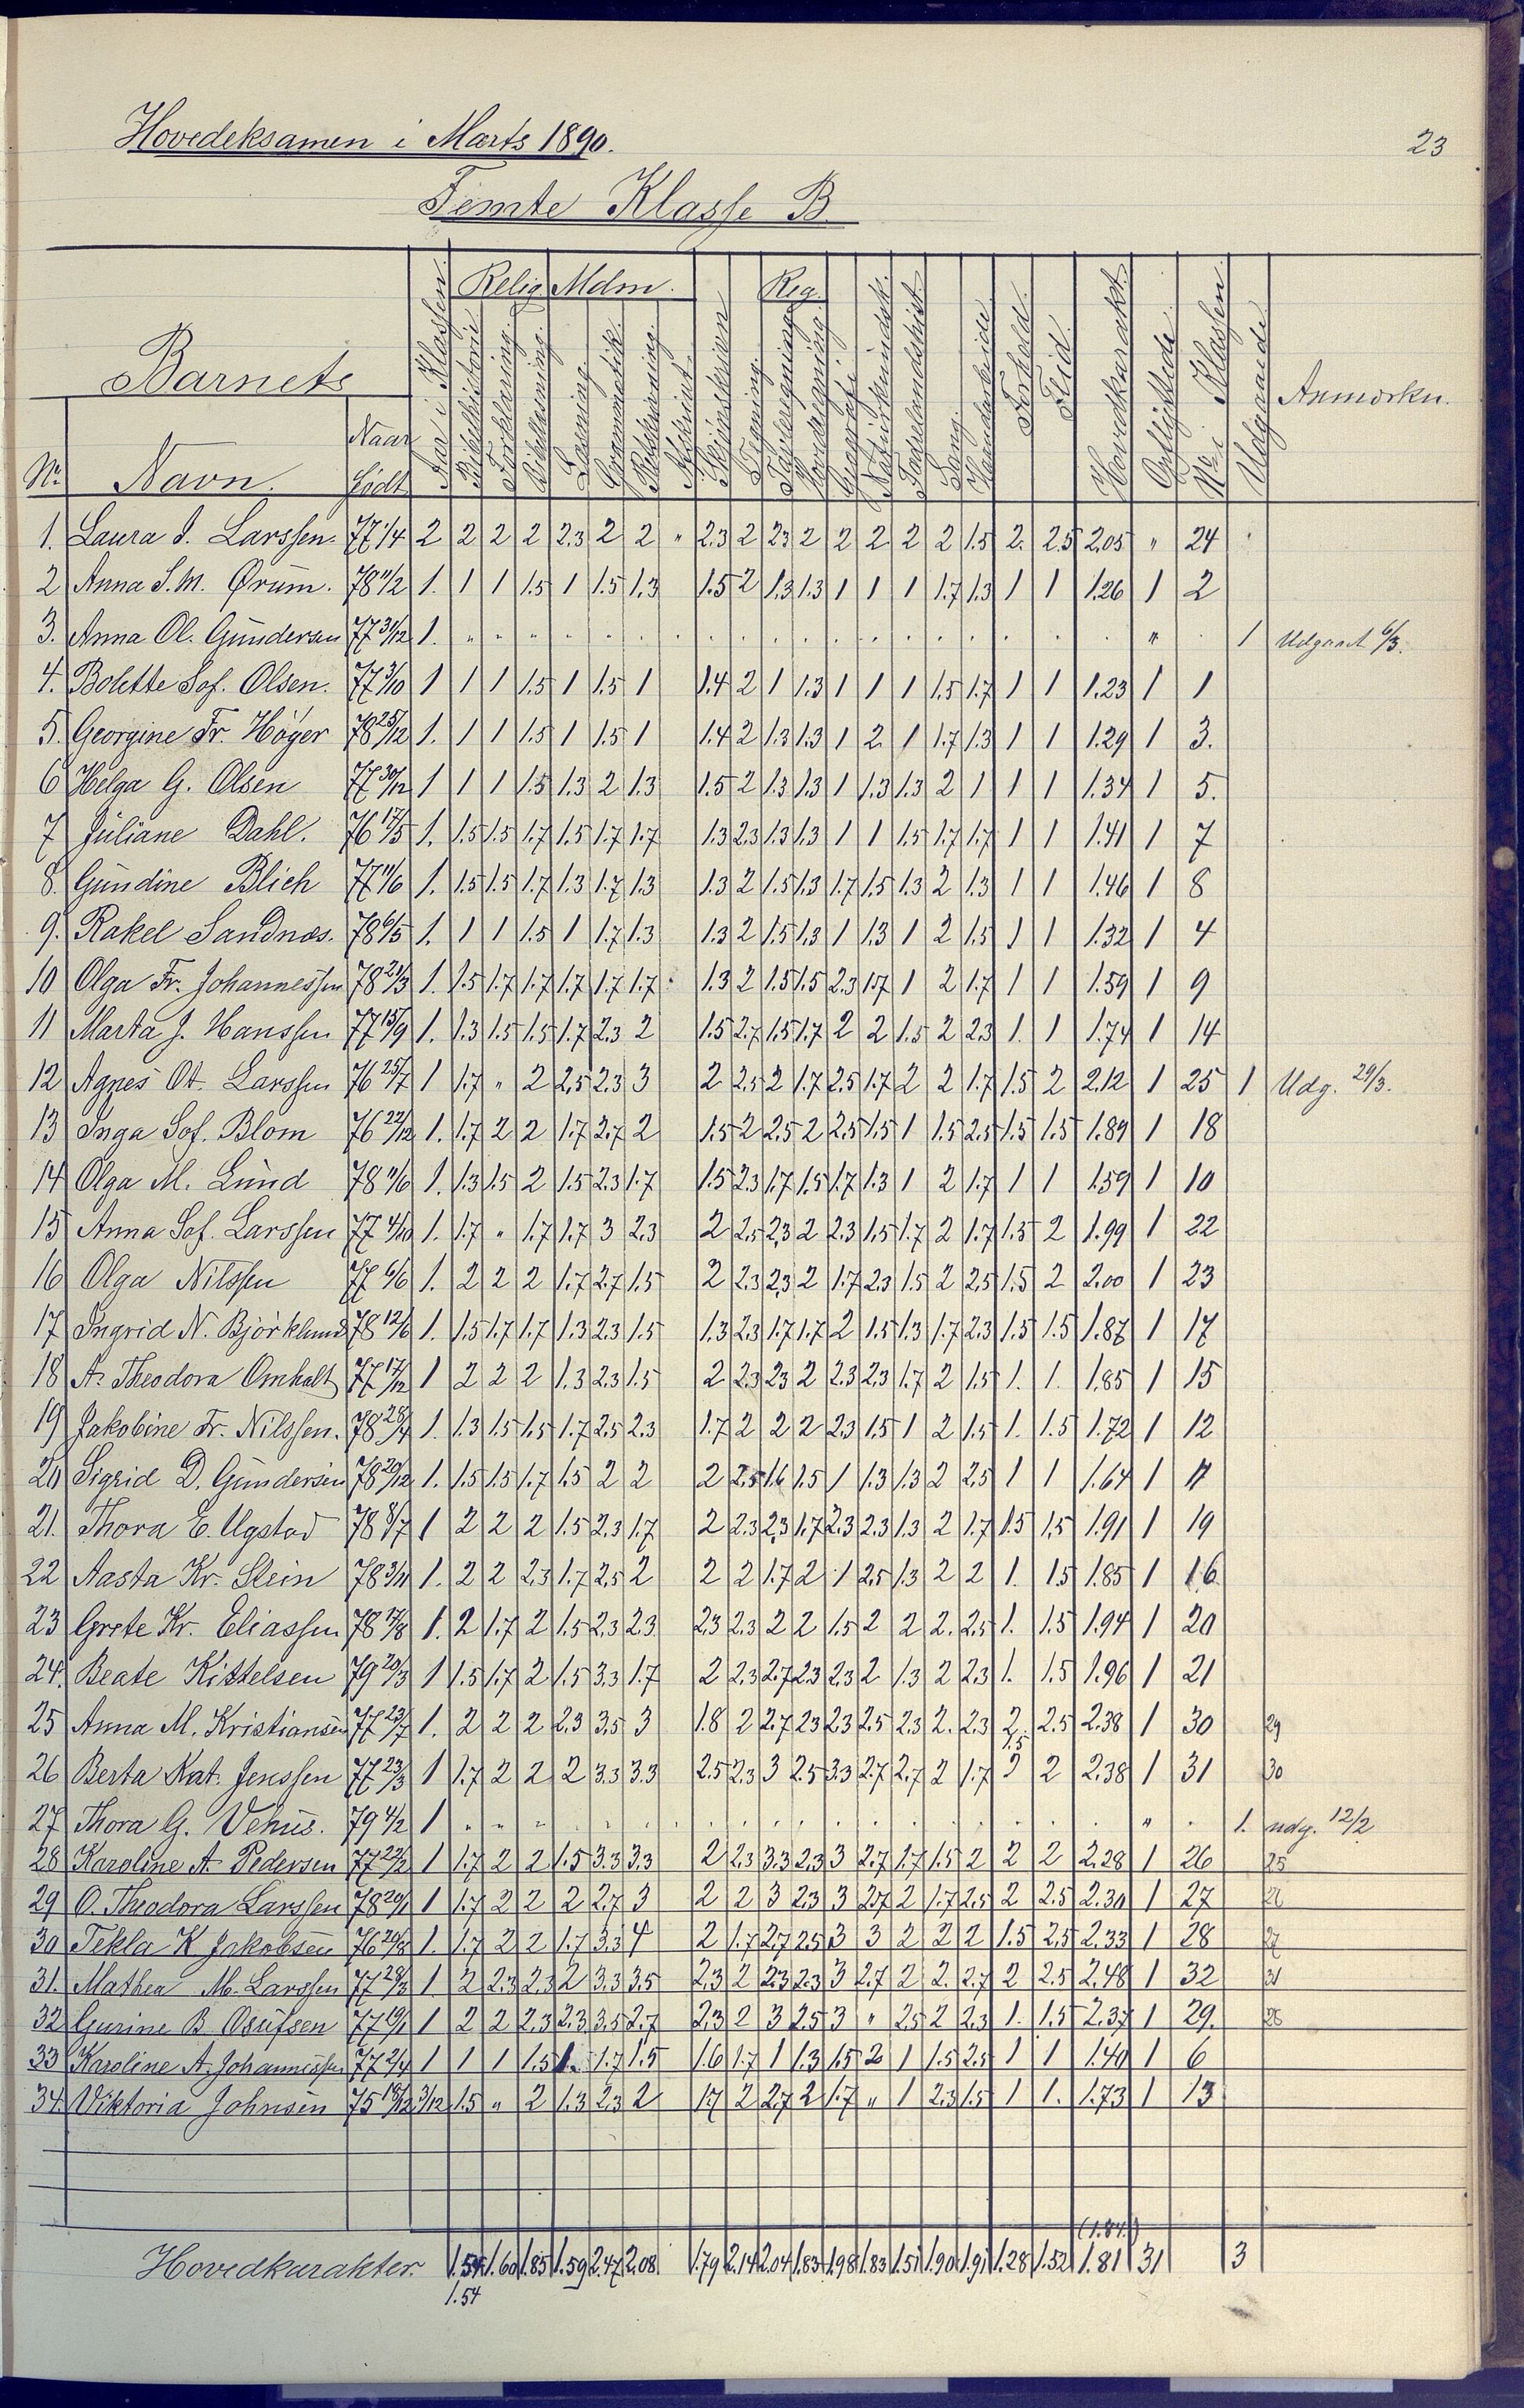 Hovedeksamen i Marts 1890.
23
Femte Klasse B.
Relig. Mdm. Reg.
Barnets Aar i Klassen. Bibelhistorie Forklaring. Bibellæsning. Læsning. Grammatik. Retskrivning. Skjönskriven Tegning. Tavleregning Hovedregning Geografi Naturkundsk. Fædrelandshist. Sang. Haandarbeide Forhold. Flid. Hovedkarakt. Opflyttede. No i Klassen Udgaaede Anmærkn.
No. Navn. Naar födt
1. Laura J. Larssen. 77 1/4 2 2 2 2 2.3 2 2 " 2.3 2 2.3 2 2 2 2 2 1.5 2. 2.5 2.05 " 24
2 Anna S. M. Ørum. 78 11/2 1. 1 1 1.5 1 1.5 1.3 1.5 2 1.3 1.3 1 1 1 1.7 1.3 1 1 1.26 1 2
3. Anna Ol. Gundersen 77 31/12 1. " " " " 1 Udgaaet 6/3.
4. Bolette Sof. Olsen. 77 3/10 1 1 1 1.5 1 1.5 1 1.4 2 1 1.3 1 1 1 1.5 1.7 1 1 1.23 1 1
5. Georgine Fr. Höyer 78 25/12 1. 1 1 1.5 1 1.5 1 1.4 2 1.3 1.3 1 2 1 1.7 1.3 1 1 1.29 1 3.
6 Helga G. Olsen 77 30/12 1 1 1 1.5 1.3 2 1.3 1.5 2 1.3 1.3 1 1.3 1.3 2 1 1 1 1.34 1 5.
7 Juliane Dahl. 76 17/5 1. 1.5 1.5 1.7 1.5 1.7 1.7 1.3 2.3 1.3 1.3 1 1 1.5 1.7 1.7 1 1 1.41 1 7
8. Gundine Blich 77 11/6 1. 1.5 1.5 1.7 1.3 1.7 1.3 1.3 2 1.5 1.3 1.7 1.5 1.3 2 1.3 1 1 1.46 1 8
9. Rakel Sandnæs. 78 6/5 1. 1 1 1.5 1 1.7 1.3 1.3 2 1.5 1.3 1 1.3 1 2 1.5 1 1 1.32 1 4
10 Olga Fr. Johannessen 78 21/3 1. 1.5 1.7 1.7 1.7 1.7 1.7 1.3 2 1.5 1.5 2.3 1.7 1 2 1.7 1 1 1.59 1 9
11 Marta J. Hanssen 77 15/9 1. 1.3 1.5 1.5 1.7 2.3 2 1.5 2.7 1.5 1.7 2 2 1.5 2 2.3 1. 1 1.74 1 14
12 Agnes Ot. Larssen 76 25/7 1 1.7 " 2 2.5 2.3 3 2 2.5 2 1.7 2.5 1.7 2 2 1.7 1.5 2 2.12 1 25 1 Udg. 29/3.
13 Inga Sof. Blom 76 22/12 1. 1.7 2 2 1.7 2.7 2 1.5 2 2.5 2 2.5 1.5 1 1.5 2.5 1.5 1.5 1.89 1 18
14 Olga M. Lund 78 11/6 1. 1.3 1.5 2 1.5 2.3 1.7 1.5 2.3 1.7 1.5 1.7 1.3 1 2 1.7 1 1 1.59 1 10
15 Anna Sof. Larssen 77 4/10 1. 1.7 " 1.7 1.7 3 2.3 2 2.5 2.3 2 2.3 1.5 1.7 2 1.7 1.5 2 1.99 1 22
16 Olga Nilssen 77 6/6 1. 2 2 2 1.7 2.7 1.5 2 2.3 2.3 2 1.7 2.3 1.5 2 2.5 1.5 2 2.00 1 23
17 Ingrid N. Björklund 78 12/6 1. 1.5 1.7 1.7 1.3 2.3 1.5 1.3 2.3 1.7 1.7 2 1.5 1.3 1.7 2.3 1.5 1.5 1.87 1 17
18 A. Theodora Omholt 77 17/12 1 2 2 2 1.3 2.3 1.5 2 2.3 2.3 2 2.3 2.3 1.7 2 1.5 1. 1. 1.85 1 15
19 Jakobine Fr. Nilssen. 78 28/4 1. 1.3 1.5 1.5 1.7 2.5 2.3 1.7 2 2 2 2.3 1.5 1 2 1.5 1. 1.5 1.72 1 12
20 Sigrid D. Gundersen 78 29/12 1. 1.5 1.5 1.7 1.5 2 2 2 2.5 1.6 1.5 1 1.3 1.3 2 2.5 1 1 1.64 1 11
21. Thora E. Ugstad 78 8/7 1 2 2 2 1.5 2.3 1.7 2 2.3 2.3 1.7 2.3 2.3 1.3 2 1.7 1.5 1.5 1.91 1 19
22 Aasta Kr. Stein 78 3/11 1. 2 2 2.3 1.7 2.5 2 2 2 1.7 2 1 2.5 1.3 2 2 1. 1.5 1.85 1 16
23 Grete Kr. Eliassen 78 17/8 1. 2 1.7 2 1.5 2.3 2.3 2.3 2.3 2 2 1.5 2 2 2. 2.5 1. 1.5 1.94 1 20
24. Beate Kittelsen 79 20/3 1 1.5 1.7 2 1.5 3.3 1.7 2 2.3 2.7 2.3 2.3 2 1.3 2 2.3 1. 1.5 1.96 1 21
25 Anna M. Kristiansen 77 23/7 1. 2 2 2 2.3 3.5 3 1.8 2 2.7 2.3 2.3 2.5 2.3 2. 2.3 2. 2.5 2.38 1 30 29
26 Berta Kat. Jenssen 77 23/3 1 1.7 2 2 2 3.3 3.3 2.5 2.3 3 2.5 3.3 2.7 2.7 2 1.7 1.5 2 2 2.38 1 31 30
27 Thora G. Vehus. 79 4/2 1 " " " " 1. udg. 12/2
28 Karoline A. Pedersen 77 22/2 1 1.7 2 2 1.5 3.3 3.3 2 2.3 3.3 2.3 3 2.7 1.7 1.5 2 2 2 2.28 1 26 25
29 O. Theodora Larssen 78 20/1 1 1.7 2 2 2 2.7 3 2 2 3 2.3 3 2.7 2 1.7 2.5 2 2.5 2.30 1 27 26
30 Tekla K Jakobsen 76 20/8 1. 1.7 2 2 1.7 3.3 4 2 1.7 2.7 2.5 3 3 2 2 2 1.5 2.5 2.33 1 28 27
31. Mathea M. Larssen 77 28/3 1 2 2.3 2.3 2 3.3 3.5 2.3 2 2.3 2.3 3 2.7 2 2. 2.7 2 2.5 2.48 1 32 31
32 Gurine B Osufsen 77 19/1 1 2 2 2.3 2.3 3.5 2.7 2.3 2 3 2.5 3 " 2.5 2 2.3 1. 1.5 2.37 1 29. 28
33 Karoline A. Johannessen 77 2/4 1 1 1 1.5 1. 1.7 1.5 1.6 1.7 1 1.3 1.5 2 1 1.5 2.5 1 1 1.40 1 6
34. Viktoria Johnsen 75 18/12 3/12 1.5 " 2 1.3 2.3 2 1.7 2 2.7 2 1.7 " 1 2.3 1.5 1 1. 1.73 1 13
(1.84.)
Hovedkarakter. 1.54 1.60 1.85 1.59 2.47 2.08 1.79 2.14 2.04 1.83 1.98 1.83 1.51 1.90 1.91 1.28 1.52 1.81 31 3
1.54